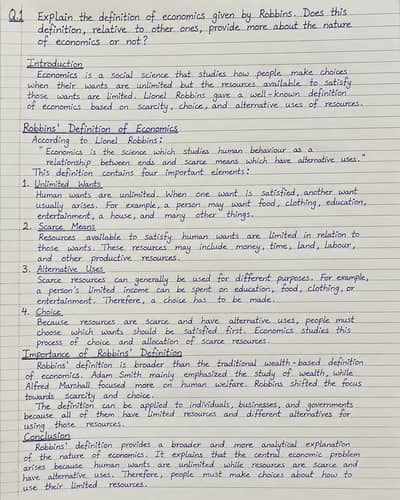 Q.1 Explain the definition of economics given by Robbins. Does this
definition, relative to other ones, provide more about the nature
of economics or not?
Introduction
Economics is a social science that studies how people make choices
when their wants are unlimited but the resources available to satisfy
those wants are limited. Lionel Robbins gave a well-known definition
of economics based on scarcity, choice, and alternative uses of resources.
Robbins' Definition of Economics
According to Lionel Robbins:
"Economics is the science which studies human behaviour as a
relationship between ends and scarce means which have alternative uses."
This definition contains four important elements:
1. Unlimited Wants
Human wants are unlimited. When one want is satisfied, another want
usually arises. For example, a person may want food, clothing, education,
entertainment, a house, and many other things.
2. Scarce Means
Resources available to satisfy human wants are limited in relation to
those wants. These resources may include money, time, land, labour,
and other productive resources.
3. Alternative Uses
Scarce resources can generally be used for different purposes. For example,
a person's limited income can be spent on education, food, clothing, or
entertainment. Therefore, a choice has to be made.
4. Choice
Because resources are scarce and have alternative uses, people must
choose which wants should be satisfied first. Economics studies this
process of choice and allocation of scarce resources.
Importance of Robbins' Definition
Robbins' definition is broader than the traditional wealth-based definition
of economics. Adam Smith mainly emphasized the study of wealth, while
Alfred Marshall focused more on human welfare. Robbins shifted the focus
towards scarcity and choice.
The definition can be applied to individuals, businesses, and governments
because all of them have limited resources and different alternatives for
using those resources.
Conclusion
Robbins' definition provides a broader and more analytical explanation
of the nature of economics. It explains that the central economic problem
arises because human wants are unlimited while resources are scarce and
have alternative uses. Therefore, people must make choices about how to
use their limited resources.